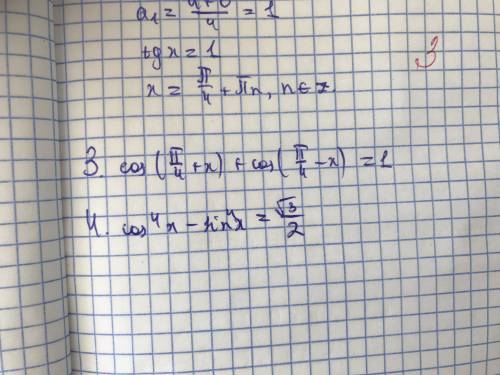 a₁ = (4+0)/4 = 1
tg x = 1
3
x = π/4 + πn, n ∈ z
3. cos(π/4 + x) + cos(π/4 − x) = 1
4. cos⁴x − sin⁴x = √3/2